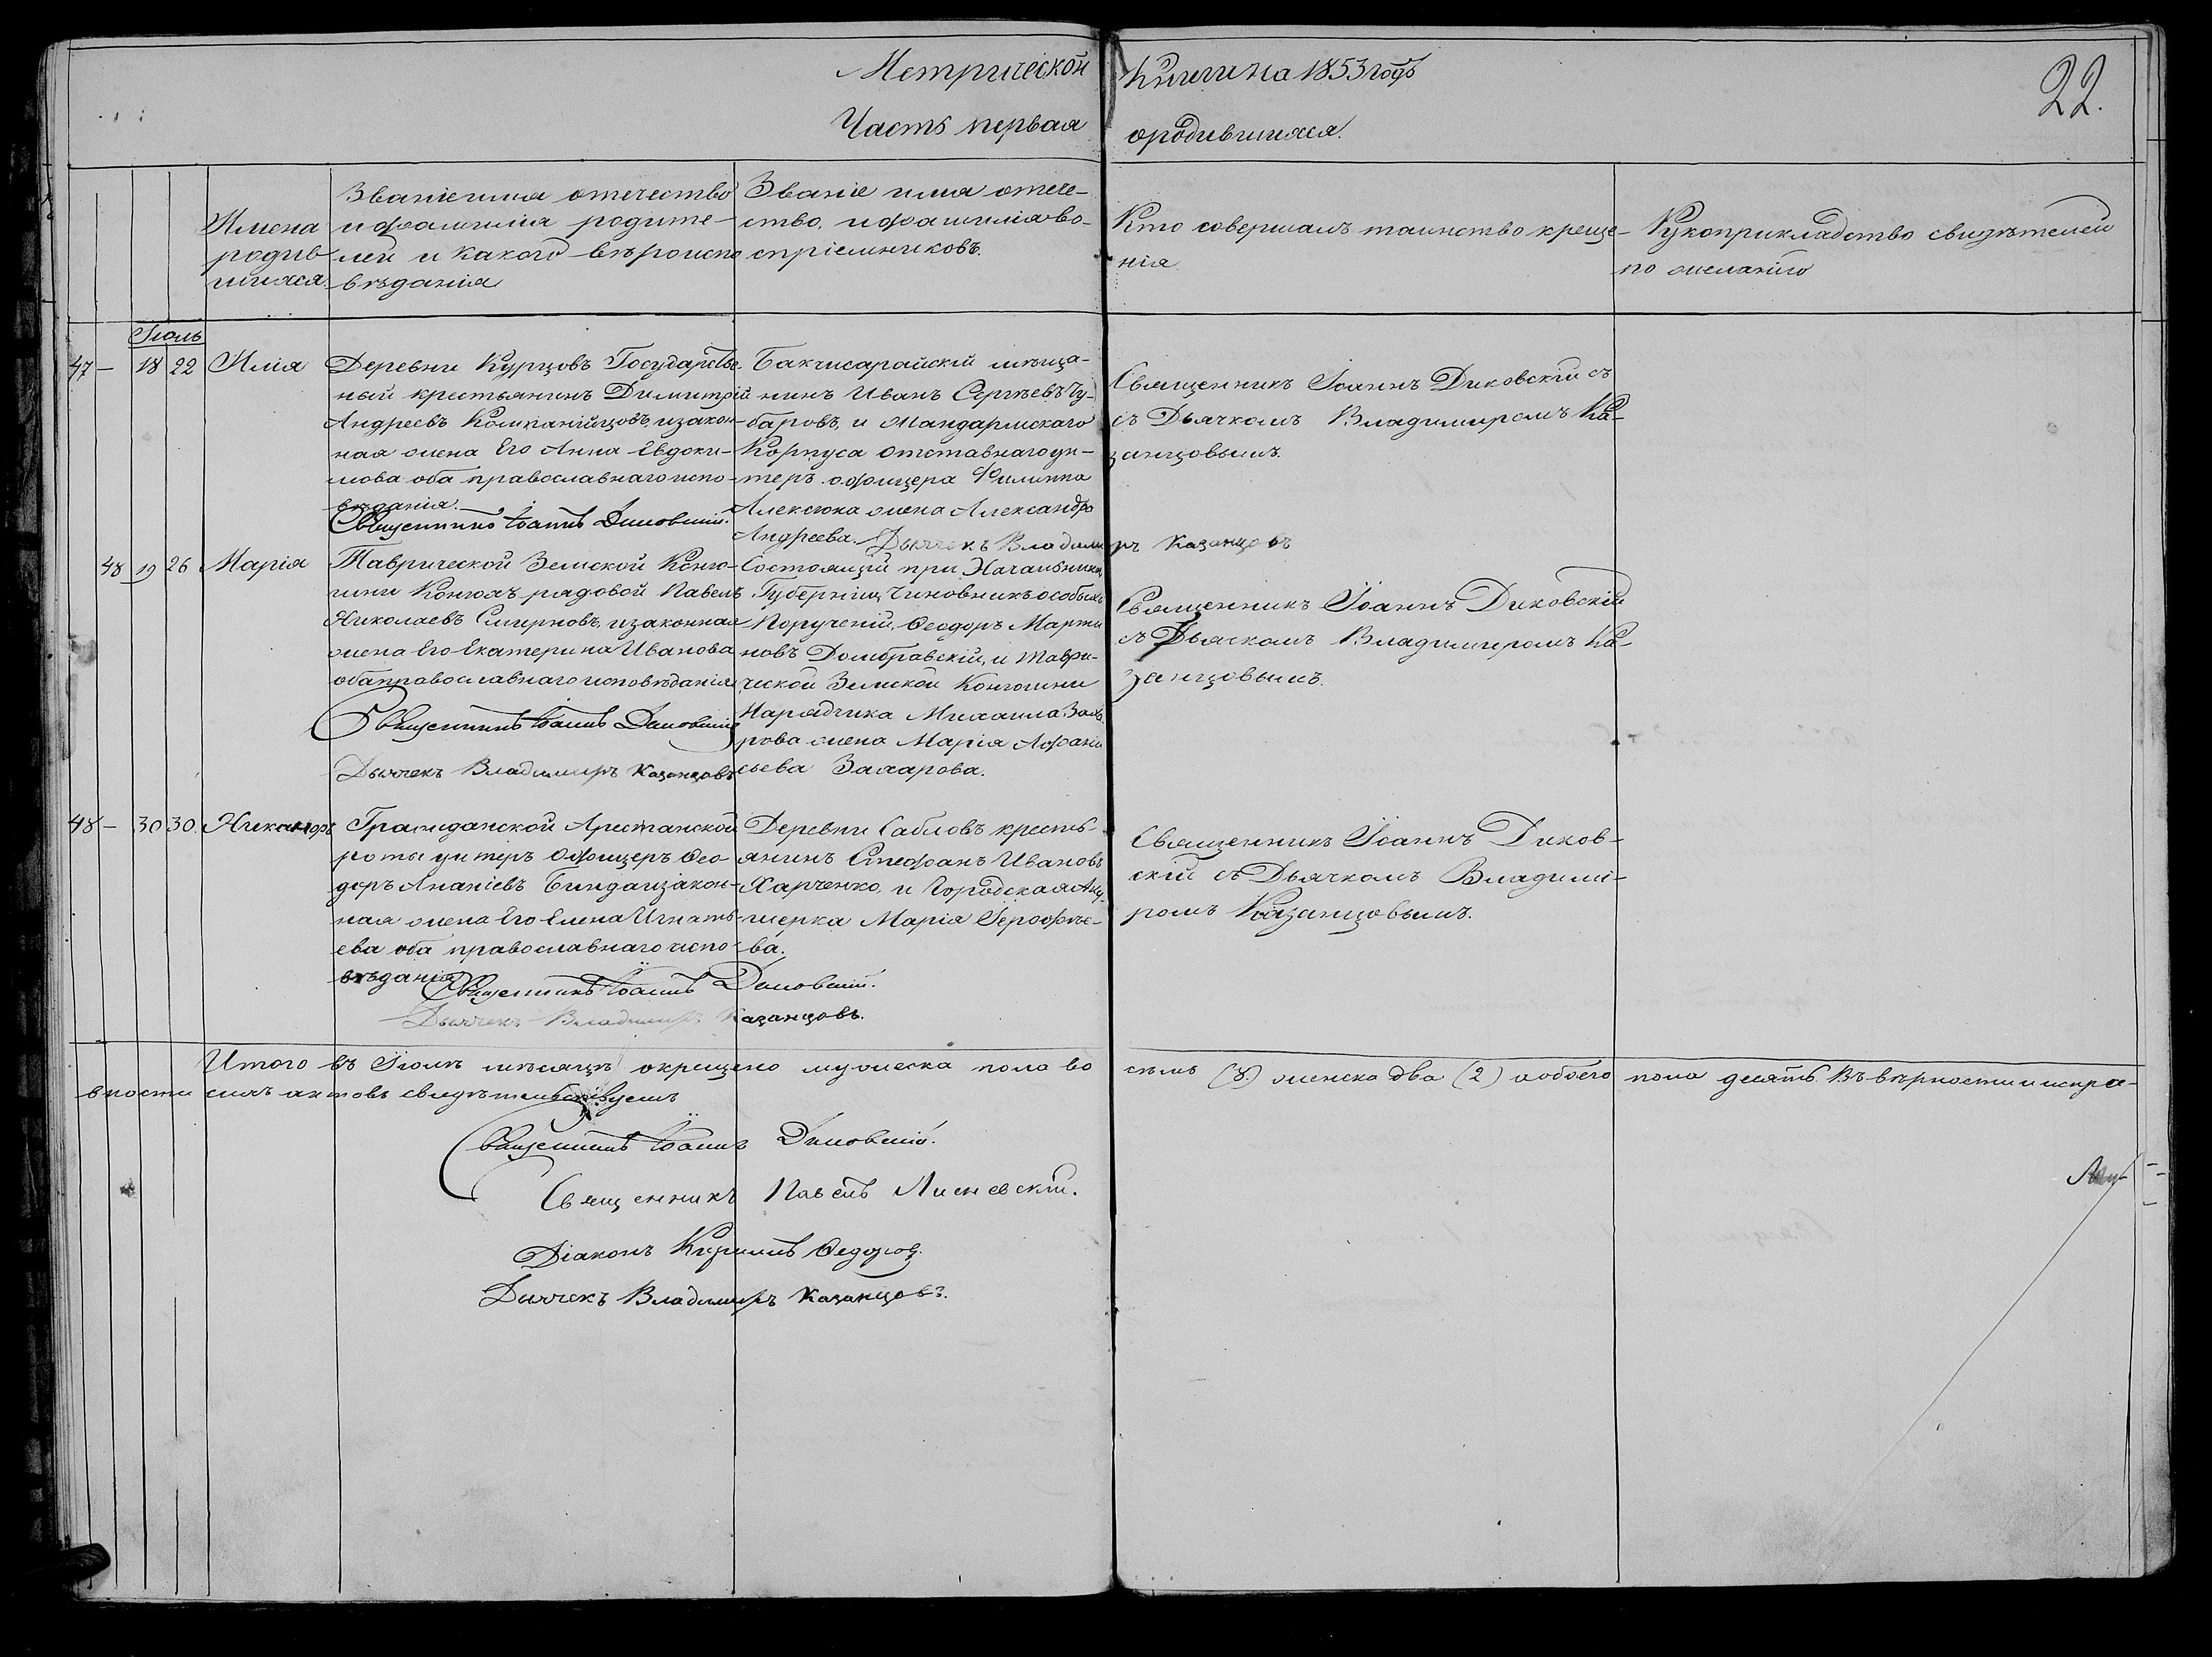 Метрической Книги на 1853 годъ
22.
Часть первая о родившихся.
Имена
родив
шихся.
Званіе имя отечество
и фамилія родите-
лей и какого вѣроиспо
вѣданія
Званіе имя отече-
ство, и фамилія во-
спріемниковъ.
Кто совершалъ таинство креще-
нія
Рукоприкладство свидѣтелей
по желанію
Іюль
47 – 18 22 Илія
Деревни Курцовъ Государстве
ный крестьянинъ Димитрій
Андреевъ Компанійцовъ, и закон-
ная жена Его Анна Евдоки-
мова оба православнаго испо-
вѣданія.
Священникъ Іоаннъ Диковскій.
Бакчисарайскій мѣща-
нинъ Иванъ Сергѣевъ Чу-
баровъ, и Жандармскаго
Корпуса отставнаго ун-
теръ офицера Филиппа
Алексюка жена Александра
Андреева.
Дьячекъ Владимиръ Казанцовъ
Священникъ Іоаннъ Диковскій съ
съ Дьячкомъ Владимиромъ Ка-
занцовымъ.
48 19 26 Марія
Таврической Земской Коню-
шни Конюхъ рядовой Павелъ
Николаевъ Смирновъ, и законная
жена Его Екатерина Иванова
оба православнаго исповѣданія
Священникъ Іоаннъ Диковскій
Дьячекъ Владимиръ Казанцовъ
Состоящій при Начальникѣ
Губерніи, Чиновникъ особыхъ
Порученій, Ѳеодоръ Марти
новъ Домбравскій, и Таври-
ческой Земской Конюшни
Нарядчика Михаила Заха
рова жена Марія Афана
сьева Захарова.
Священникъ Іоаннъ Диковскій
съ Дьячкомъ Владимиромъ Ка-
занцовымъ.
48 – 30 30. Никаноръ
Гражданской Арестанской
роты унтеръ Офицеръ Ѳео-
доръ Ананіевъ Бинда и закон-
ная жена Его Елена Игнать-
ева оба православнаго испо-
вѣданія
Священникъ Іоаннъ Диковскій.
Дьячекъ Владимиръ Казанцовъ.
Деревни Сабловъ кресть-
янинъ Стефанъ Ивановъ
Харченко, и Городская Аку-
шерка Марія Герофѣе-
ва.
Священникъ Іоаннъ Диков-
скій съ Дьячкомъ Владими-
ромъ Казанцовымъ.
Итого въ Іюлѣ мѣсяцѣ окрещено мужеска пола во семь (8.) женска два (2) а обоего пола десять. Въ вѣрности и испра-
вности сихъ актовъ свидѣтельствуемъ
Священникъ Іоаннъ Диковскій.
Священникъ Павелъ Лисневскій.
Діаконъ Кирилъ Ѳедоров.
Дьячекъ Владимиръ Казанцовъ.